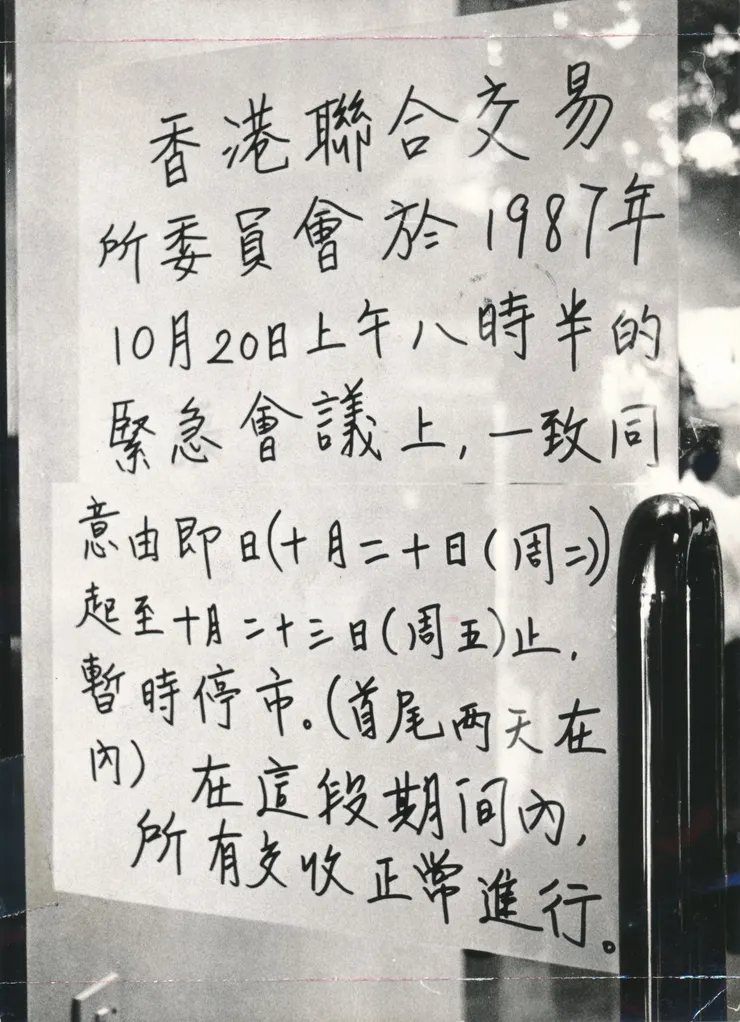 香港聯合交易
所委員會於1987年
10月20日上午八時半的
緊急會議上,一致同
意由即日(十月二十日(周二))
起至十月二十三日(周五)止,
暫時停市。(首尾两天在
內) 在這段期间內,
所有交收正常進行。